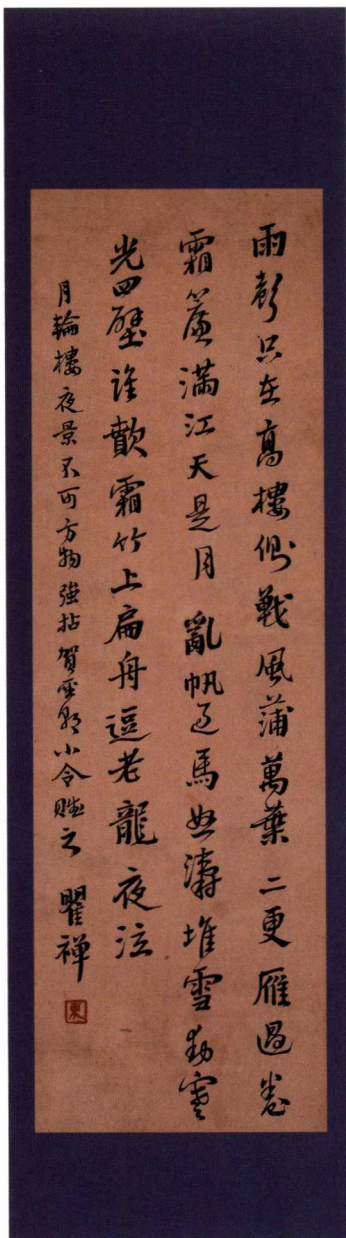 雨聲只在高樓側戰風蒲萬葉二更雁過卷
霜簾滿江天是月亂帆過馬怒濤堆雪動寒
光四壁誰歕霜竹上扁舟逗老龍夜泣
月輪樓夜景不可方物強拈賀丞郎小令賦之 瞿禪